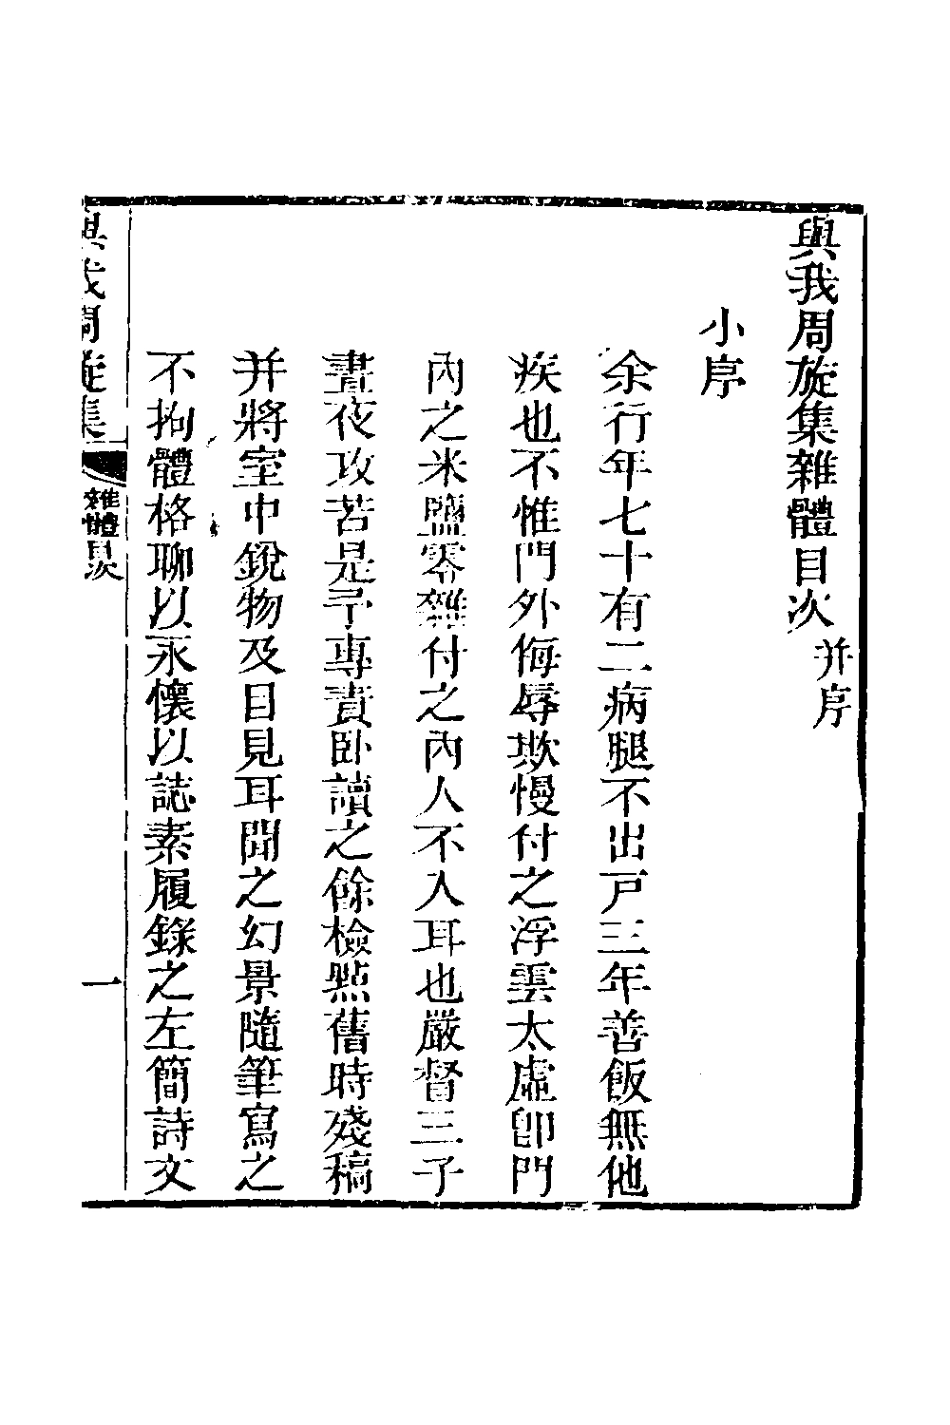 與我周旋集雜體目次并序
小序
余行年七十有二病腿不出戸三年善飯無他
疾也不惟門外侮辱欺慢付之浮雲太虛卽門
內之米鹽零雜付之內人不入耳也嚴督三子
晝夜攻苦是予專責臥讀之餘檢點舊時殘稿
并將室中銳物及目見耳聞之幻景隨筆寫之
不拘體格聊以永懷以誌素履錄之左簡詩文
與我周旋集
雜體目次
一